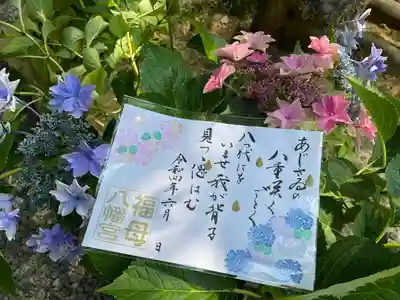 あじさゐの
八重咲く
ごとく
八つ代にを
いませ我が背子
見つゝ偲はむ
令和四年六月 日
福母
八幡宮